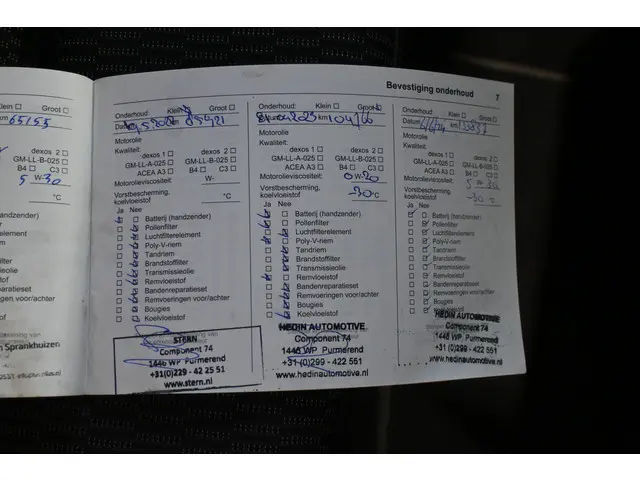 Bevestiging onderhoud
7
Klein Groot
km 65155
dexos 2
GM-LL-B-025
B4 C3
5 W-30
°C
(handzender)
element
filter
olie
stof
voor/achter
n Sprankhuizen
Onderhoud: Klein Groot
Datum 5.2022 km 85421
Motorolie
Kwaliteit:
dexos 1 dexos 2
GM-LL-A-025 GM-LL-B-025
ACEA A3 B4 C3
Motorolieviscositeit: W-
Vorstbescherming,
koelvloeistof °C
Ja Nee
Batterij (handzender)
Pollenfilter
Luchtfilterelement
Poly-V-riem
Tandriem
Brandstoffilter
Transmissieolie
Remvloeistof
Bandenreparatieset
Remvoeringen voor/achter
Bougies
Koelvloeistof
STERN
Component 74
1446 WP Purmerend
+31(0)229 - 42 25 51
www.stern.nl
Onderhoud: Klein Groot
Datum 2023 km 104166
Motorolie
Kwaliteit:
dexos 1 dexos 2
GM-LL-A-025 GM-LL-B-025
ACEA A3 B4 C3
Motorolieviscositeit: 0 W-20
Vorstbescherming,
koelvloeistof -30 °C
Ja Nee
Batterij (handzender)
Pollenfilter
Luchtfilterelement
Poly-V-riem
Tandriem
Brandstoffilter
Transmissieolie
Remvloeistof
Bandenreparatieset
Remvoeringen voor/achter
Bougies
Koelvloeistof
HEDIN AUTOMOTIVE
Component 74
1446 WP Purmerend
+31(0)299 - 422 551
www.hedinautomotive.nl
Onderhoud: Klein Groot
Datum km
Motorolie
Kwaliteit:
dexos 1 dexos 2
GM-LL-A-025 GM-LL-B-025
ACEA A3 B4 C3
Motorolieviscositeit:
Vorstbescherming,
koelvloeistof -30 °C
Ja Nee
Batterij (handzender)
Pollenfilter
Luchtfilterelement
Poly-V-riem
Tandriem
Brandstoffilter
Transmissieolie
Remvloeistof
Bandenreparatieset
Remvoeringen voor/achter
Bougies
Koelvloeistof
HEDIN AUTOMOTIVE
Component 74
1446 WP Purmerend
+31(0)299 - 422 551
www.hedinautomotive.nl